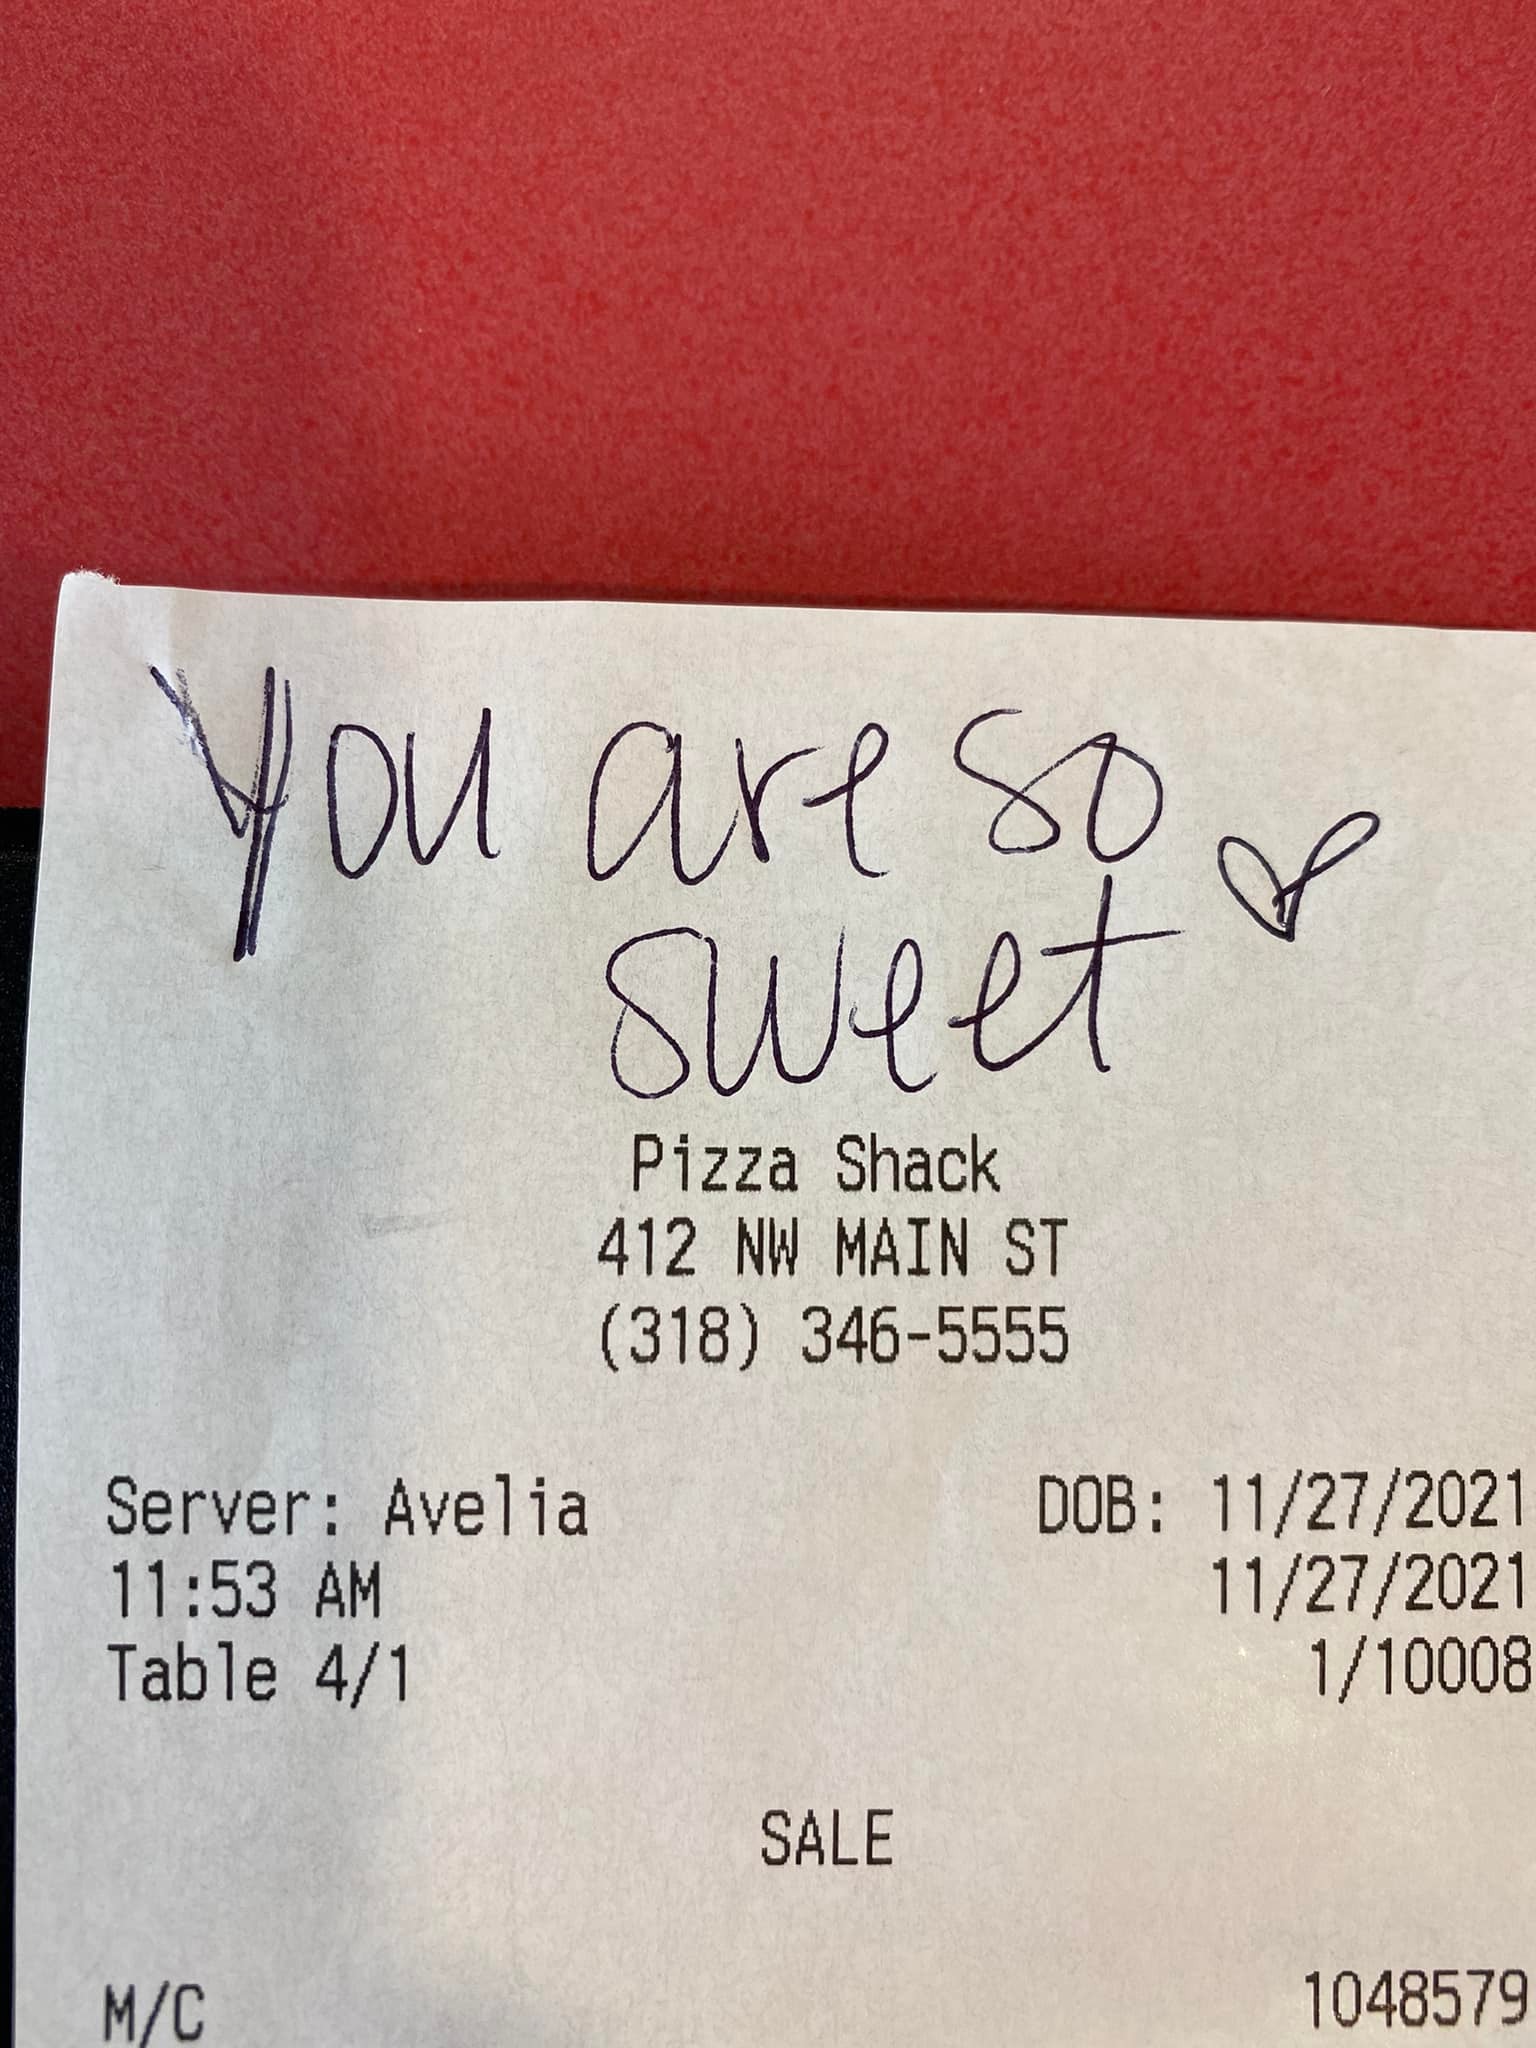 You are so
sweet
Pizza Shack
412 NW MAIN ST
(318) 346-5555
Server: Avelia DOB: 11/27/2021
11:53 AM 11/27/2021
Table 4/1 1/10008
SALE
M/C 1048579